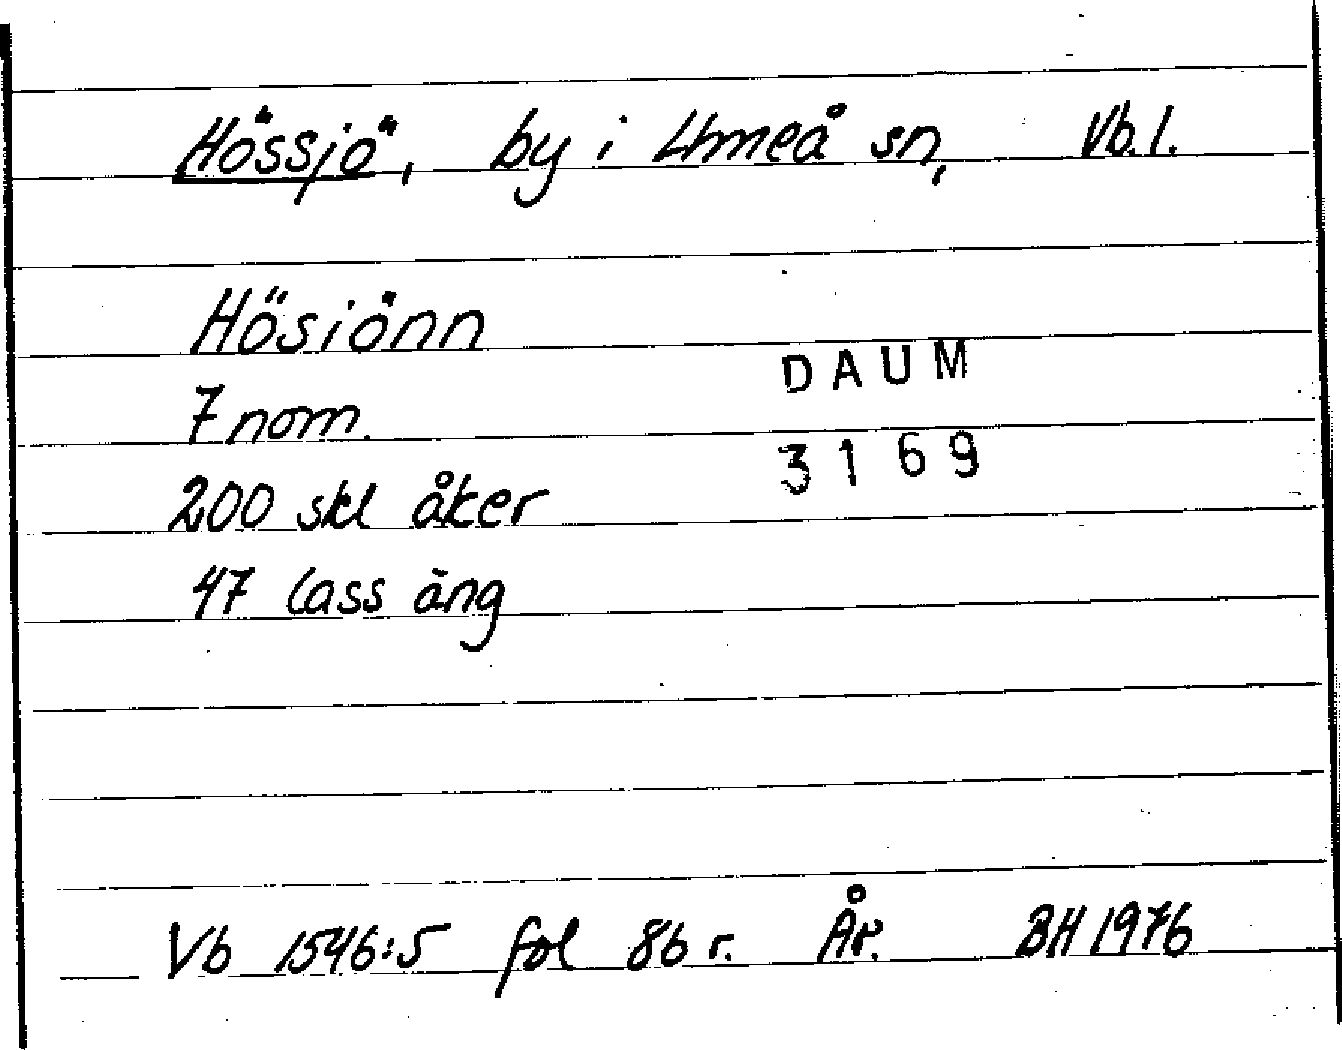 Hössjö, by i Umeå sn, Vb.l.
Hösiönn
DAUM
7 nom.
3169
200 skl åker
47 lass äng
Vb 1546:5 fol 86 r. Åk. BH 1976